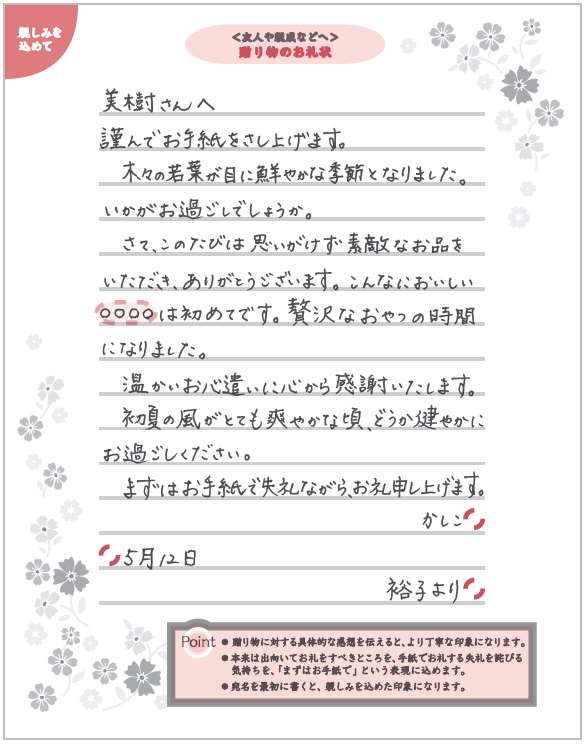 親しみを
込めて
＜友人や親戚などへ＞
贈り物のお礼状
美樹さんへ
謹んでお手紙をさし上げます。
木々の若葉が目に鮮やかな季節となりました。
いかがお過ごしでしょうか。
さて、このたびは思いがけず素敵なお品を
いただき、ありがとうございます。こんなにおいしい
○○○○は初めてです。贅沢なおやつの時間
になりました。
温かいお心遣いに心から感謝いたします。
初夏の風がとても爽やかな頃、どうか健やかに
お過ごしください。
まずはお手紙で失礼ながら、お礼申し上げます。
かしこ
5月12日
裕子より
Point
● 贈り物に対する具体的な感想を伝えると、より丁寧な印象になります。
● 本来は出向いてお礼をすべきところを、手紙でお礼する失礼を詫びる
気持ちを、「まずはお手紙で」という表現に込めます。
● 宛名を最初に書くと、親しみを込めた印象になります。